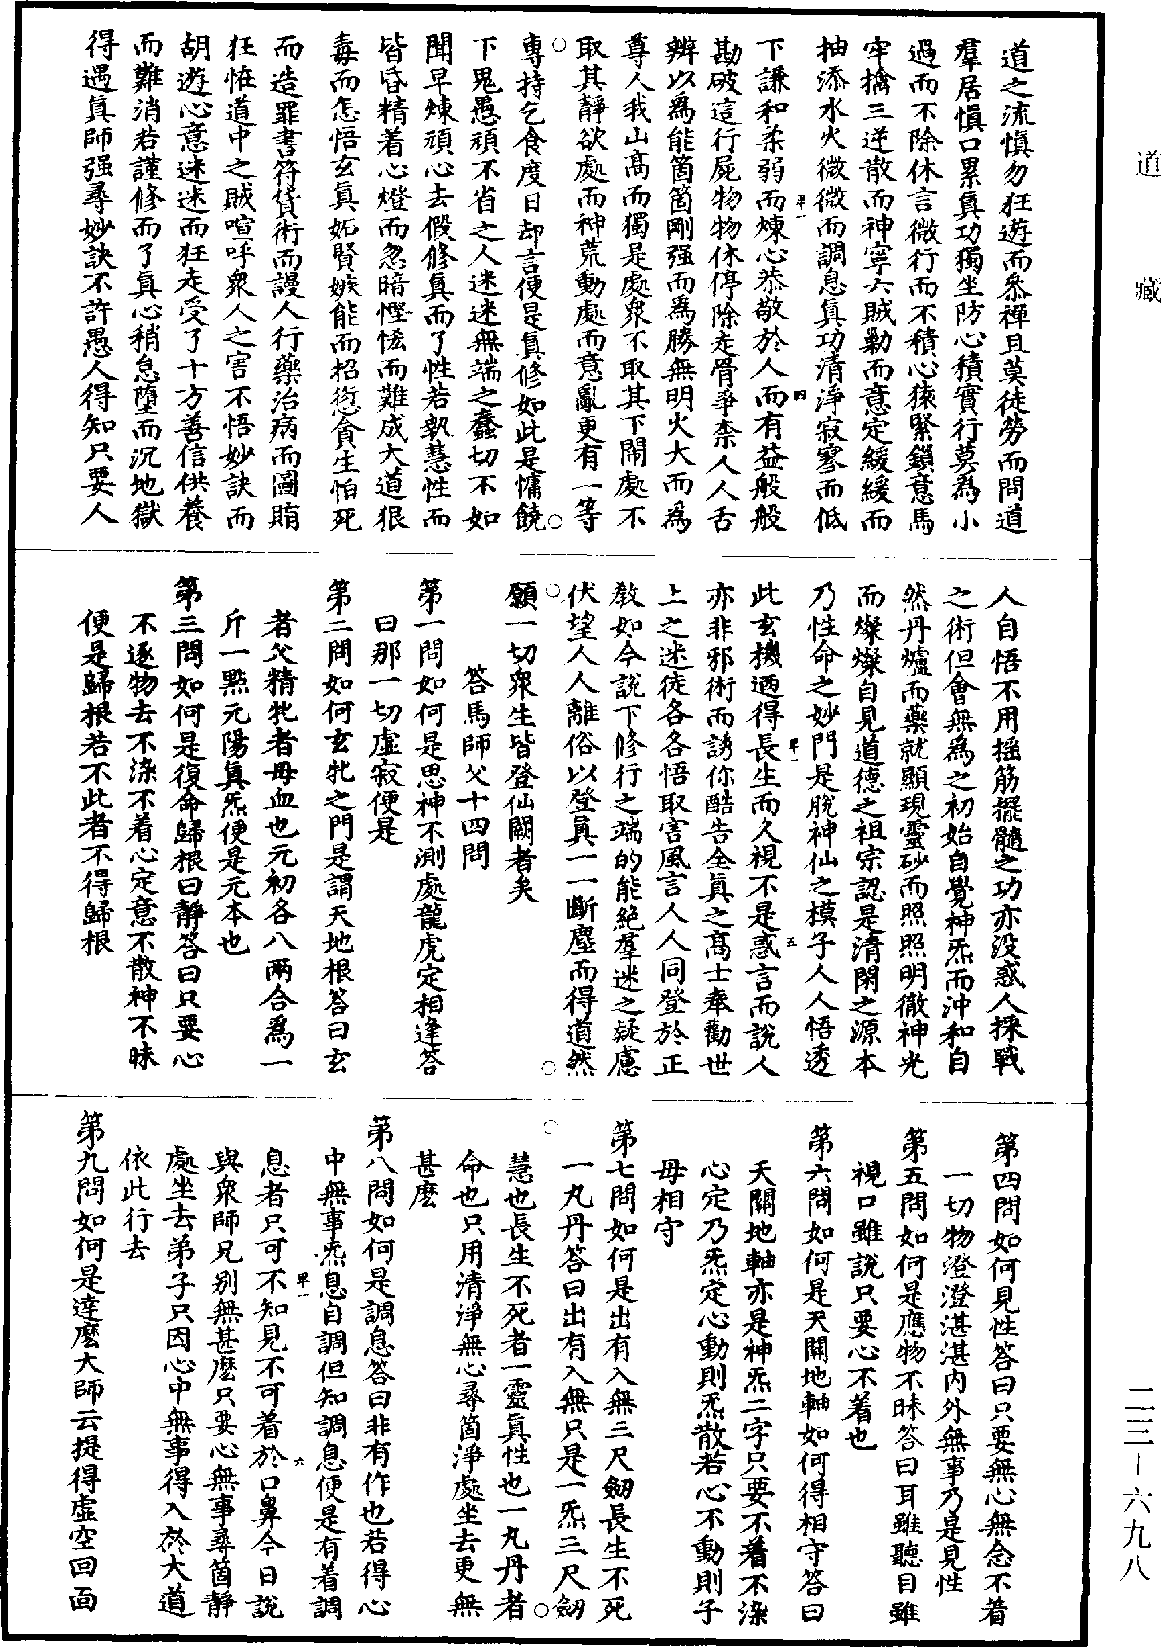 道藏
道之流慎勿狂遊而叅禪且莫徒勞而問道
羣居慎口累真功獨坐防心積實行莫為小
過而不除休言微行而不積心猿緊鎖意馬
牢擒三逆散而神寧六賊勦而意定緩緩而
抽添水火微微而調息真功清淨寂寥而低
下謙和柔弱而煉心恭敬於人而有益般般
勘破這行屍物物休停除走骨爭柰人人舌
辨以為能箇箇剛强而為勝無明火大而為
尊人我山髙而獨是處衆不取其下鬧處不
取其靜欲處而神荒動處而意亂更有一等
專持乞食度日却言便是真修如此是慵饒
下鬼愚頑不省之人迷迷無端之蠢切不如
聞早煉頑心去假修真而了性若執慧性而
皆昏精着心燈而忽暗慳悋而難成大道狠
毒而怎悟玄真妬賢嫉能而招愆貪生怕死
而造罪書符貨術而謾人行藥治病而圖賄
狂恠道中之賊喧呼衆人之害不悟妙訣而
胡遊心意迷迷而狂走受了十方善信供養
而難消若謹修而了真心稍怠墮而沉地獄
得遇真師强尋妙訣不許愚人得知只要人
人自悟不用摇筋擺髓之功亦没惑人採戰
之術但會無為之初始自覺神炁而沖和自
然丹爐而藥就顯現靈砂而照照明徹神光
而燦燦自見道德之祖宗認是清閑之源本
乃性命之妙門是脫神仙之模子人人悟透
此玄機迺得長生而久視不是惑言而說人
亦非邪術而誘你酷告全真之髙士奉勸世
上之迷徒各各悟取害風言人人同登於正
敎如今說下修行之端的能絶羣迷之疑慮
伏望人人離俗以登真一一斷塵而得道然
願一切衆生皆登仙闕者矣
答馬師父十四問
第一問如何是思神不測處龍虎定相逢答
曰那一切虛寂便是
第二問如何玄牝之門是謂天地根答曰玄
者父精牝者母血也元初各八兩合為一
斤一㸃元陽真炁便是元本也
第三問如何是復命歸根曰靜答曰只要心
不逐物去不染不着心定意不散神不昧
便是歸根若不此者不得歸根
第四問如何見性答曰只要無心無念不着
一切物澄澄湛湛内外無事乃是見性
第五問如何是應物不昧答曰耳雖聽目雖
視口雖說只要心不着也
第六問如何是天關地軸如何得相守答曰
天關地軸亦是神炁二字只要不着不染
心定乃炁定心動則炁散若心不動則子
母相守
第七問如何是出有入無三尺劒長生不死
一丸丹答曰出有入無只是一炁三尺劒
慧也長生不死者一靈真性也一丸丹者
命也只用清淨無心尋箇淨處坐去更無
甚麽
第八問如何是調息答曰非有作也若得心
中無事炁息自調但知調息便是有着調
息者只可不知見不可着於口鼻今日說
與衆師兄别無甚麽只要心無事尋箇靜
處坐去弟子只因心中無事得入於大道
依此行去
第九問如何是達麽大師云提得虛空回面
二三–六九八